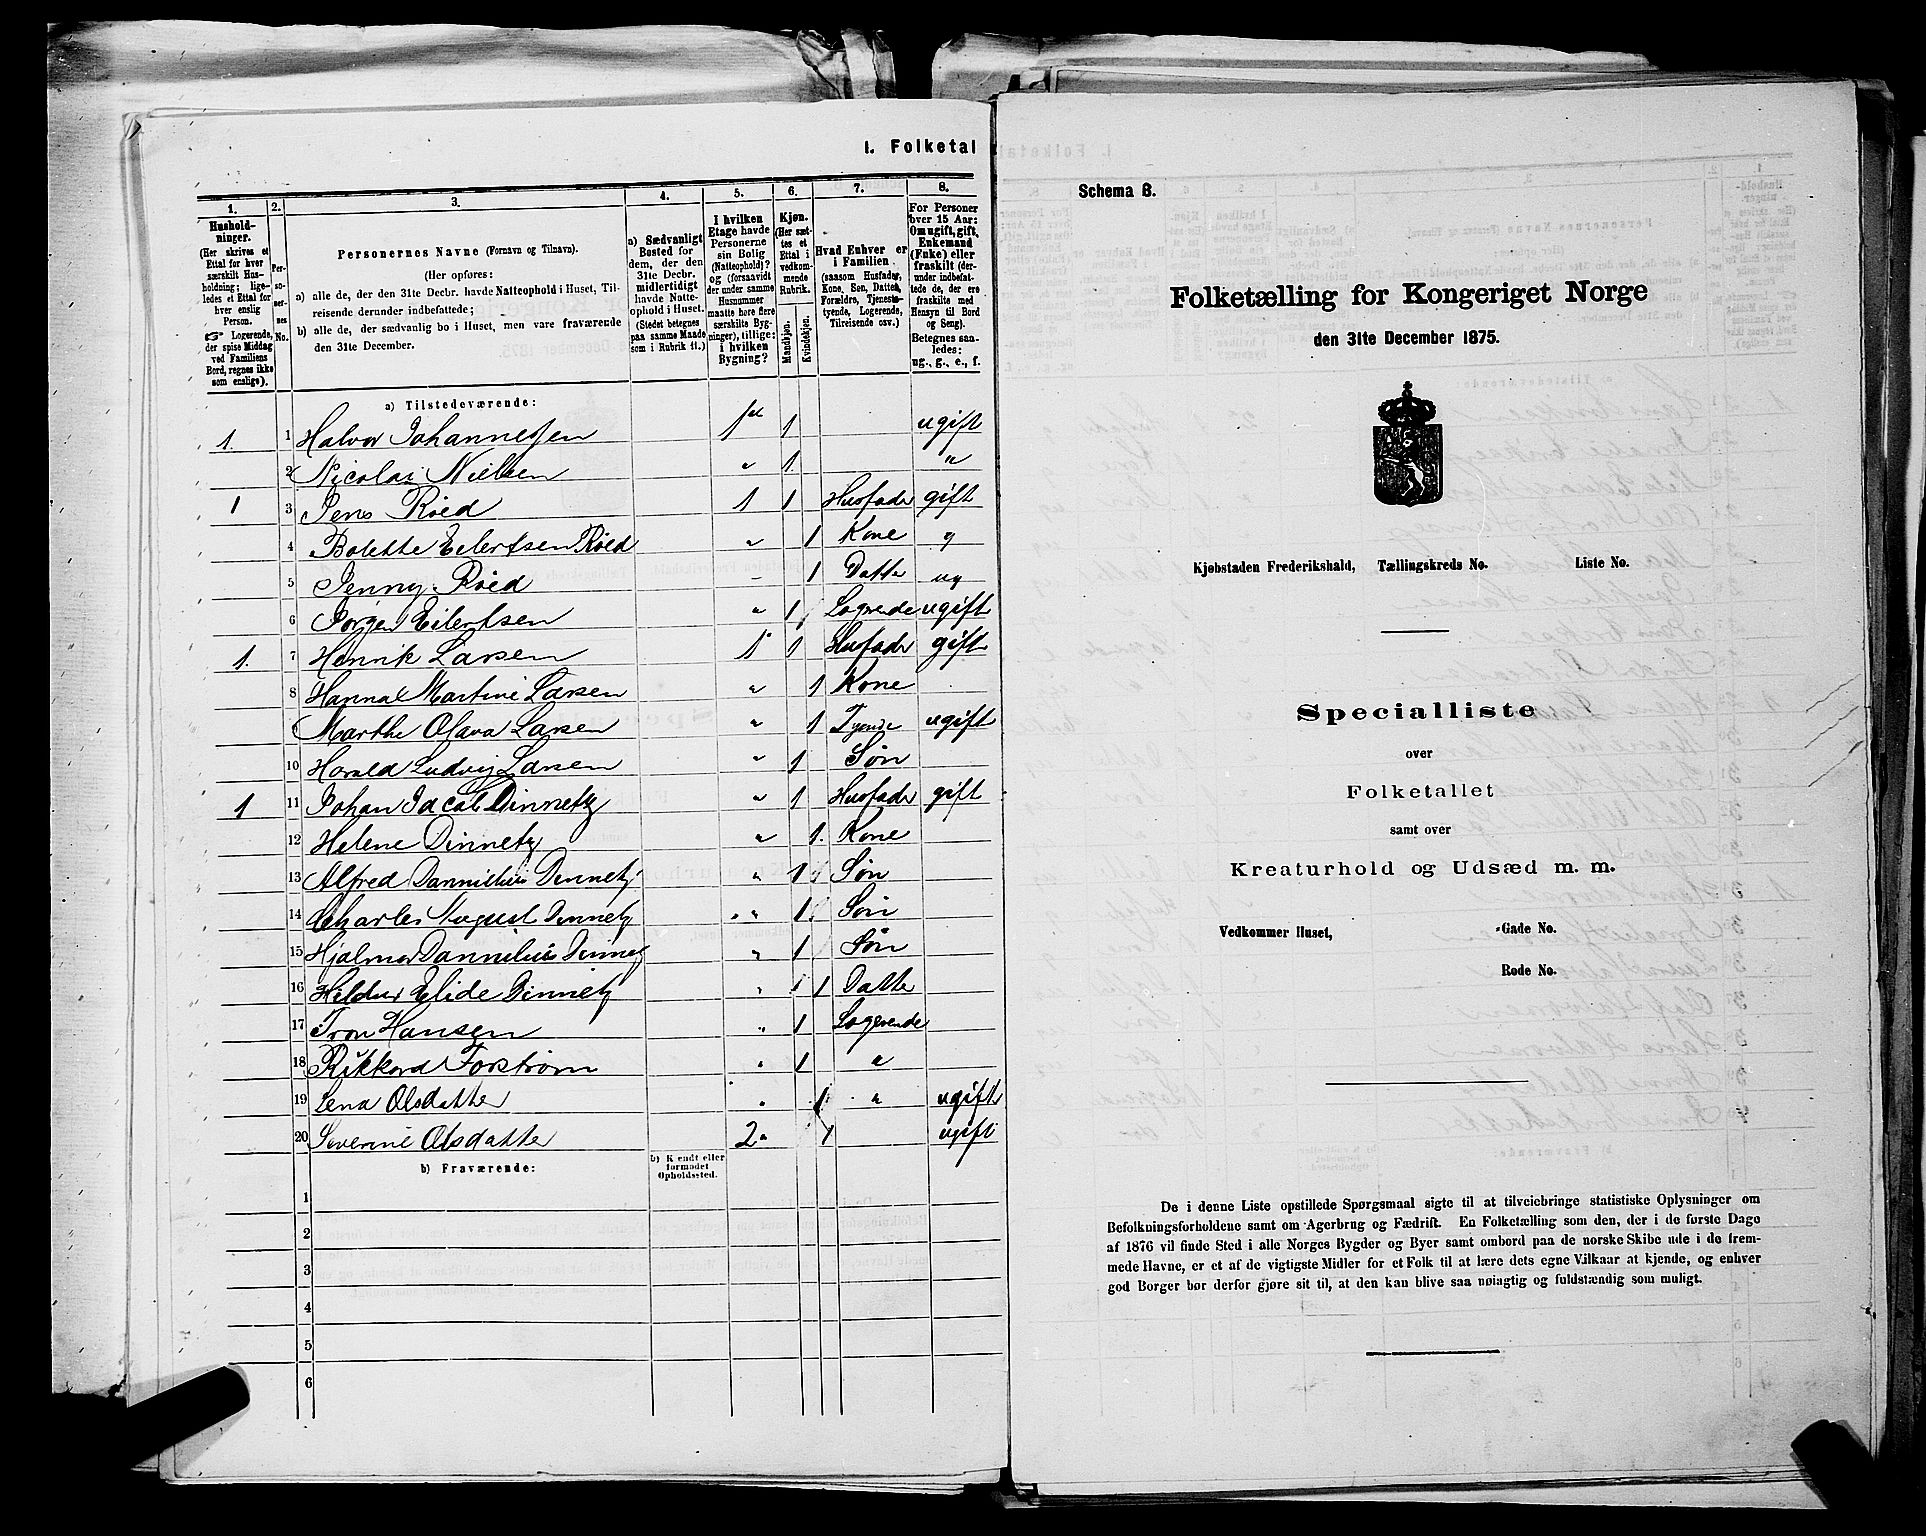 I. Folketal
1.
2.
3.
4.
5.
6.
7.
8.
Hushold-
ninger.
(Her skrives et
Ettal for hver
særskilt Hus-
holdning; lige-
ledes et Ettal for
hver enslig
Person.
☞ Logerende,
der spise Middag
ved Familiens
Bord, regnes ikke
som enslige).
Per-
so-
ner-
nes
No.
Personernes Navne (Fornavn og Tilnavn).
(Her opføres:
a) alle de, der den 31te Decbr. havde Natteophold i Huset, Til-
reisende derunder indbefattede;
b) alle de, der sædvanlig bo i Huset, men vare fraværende
den 31te December.
a) Sædvanligt
Bosted for
dem, der den
31te Decbr.
midlertidigt
havde Natte-
ophold i Huset.
(Stedet betegnes
paa samme Maade
som i Rubrik 11.)
I hvilken
Etage havde
Personerne
sin Bolig
(Natteophold)?
og (forsaavidt
der under samme
Husnummer
maatte høre flere
særskilte Byg-
ninger), tillige:
i hvilken
Bygning?
Kjøn.
(Her sæt-
tes et
Ettal i
vedkom-
mende
Rubrik.
Mandkjøn.
Kvindekjøn.
Hvad Enhver er
i Familien
(saasom Husfader,
Kone, Søn, Datter,
Forældre, Tjeneste-
tyende, Logerende,
Tilreisende osv.)
For Personer
over 15 Aar:
Om ugift, gift,
Enkemand
(Enke) eller
fraskilt (der-
under indbefat-
tede de, der ere
fraskilte med
Hensyn til Bord
og Seng).
Betegnes saa-
ledes:
ug., g., e., f.
a) Tilstedeværende:
1. 1 Halvor Johannesen 1ste 1 ugift
2 Nicolai Nielsen " 1 "
1 3 Jens Röed 1 1 Husfader gift
4 Bolette Eilertsen Röed " 1 Kone g
5 Jenny Röed – 1 Datter ug
6 Jørgen Eilertsen " 1 Logrende ugift
1. 7 Henrik Larsen 1 1 Husfader gift
8 Hannah Martine Larsen " 1 Kone
Marthe Olava Larsen " 1 Tyende ugift
10 Harald Ludvig Larsen " 1 Søn
1 11 Johan Jacob Dinnetz " 1 Husfader gift
12 Helene Dinnetz " 1. Kone
13 Alfred Dannilius Dinnetz " 1 Søn
14 Charles August Dinnetz " 1 Søn
15 Hjalmar Dannilius Dinnetz " 1 Søn
16 Hildur Elide Dinnetz " 1 Datter
17 Tron Hansen " 1 Logerende
18 Rikkard Forstrøm " 1 "
19 Lena Olsdatter " 1 " ugift
20 Severine Olsdatter 2" 1 ugift
b) Fraværende:
b) Kjendt eller
formodet
Opholdssted.
1
2
3
4
5
6
Schema B.
Folketælling for Kongeriget Norge
den 31te December 1875.
Kjøbstaden Frederikshald, Tællingskreds No. Liste No.
Specialliste
over
Folketallet
samt over
Kreaturhold og Udsæd m. m.
Vedkommer Huset, -Gade No.
Rode No.
De i denne Liste opstillede Spørgsmaal sigte til at tilveiebringe statistiske Oplysninger om
Befolkningsforholdene samt om Agerbrug og Fædrift. En Folketælling som den, der i de første Dage
af 1876 vil finde Sted i alle Norges Bygder og Byer samt ombord paa de norske Skibe ude i de frem-
mede Havne, er et af de vigtigste Midler for et Folk til at lære dets egne Vilkaar at kjende, og enhver
god Borger bør derfor gjøre sit til, at den kan blive saa nøiagtig og fuldstændig som muligt.